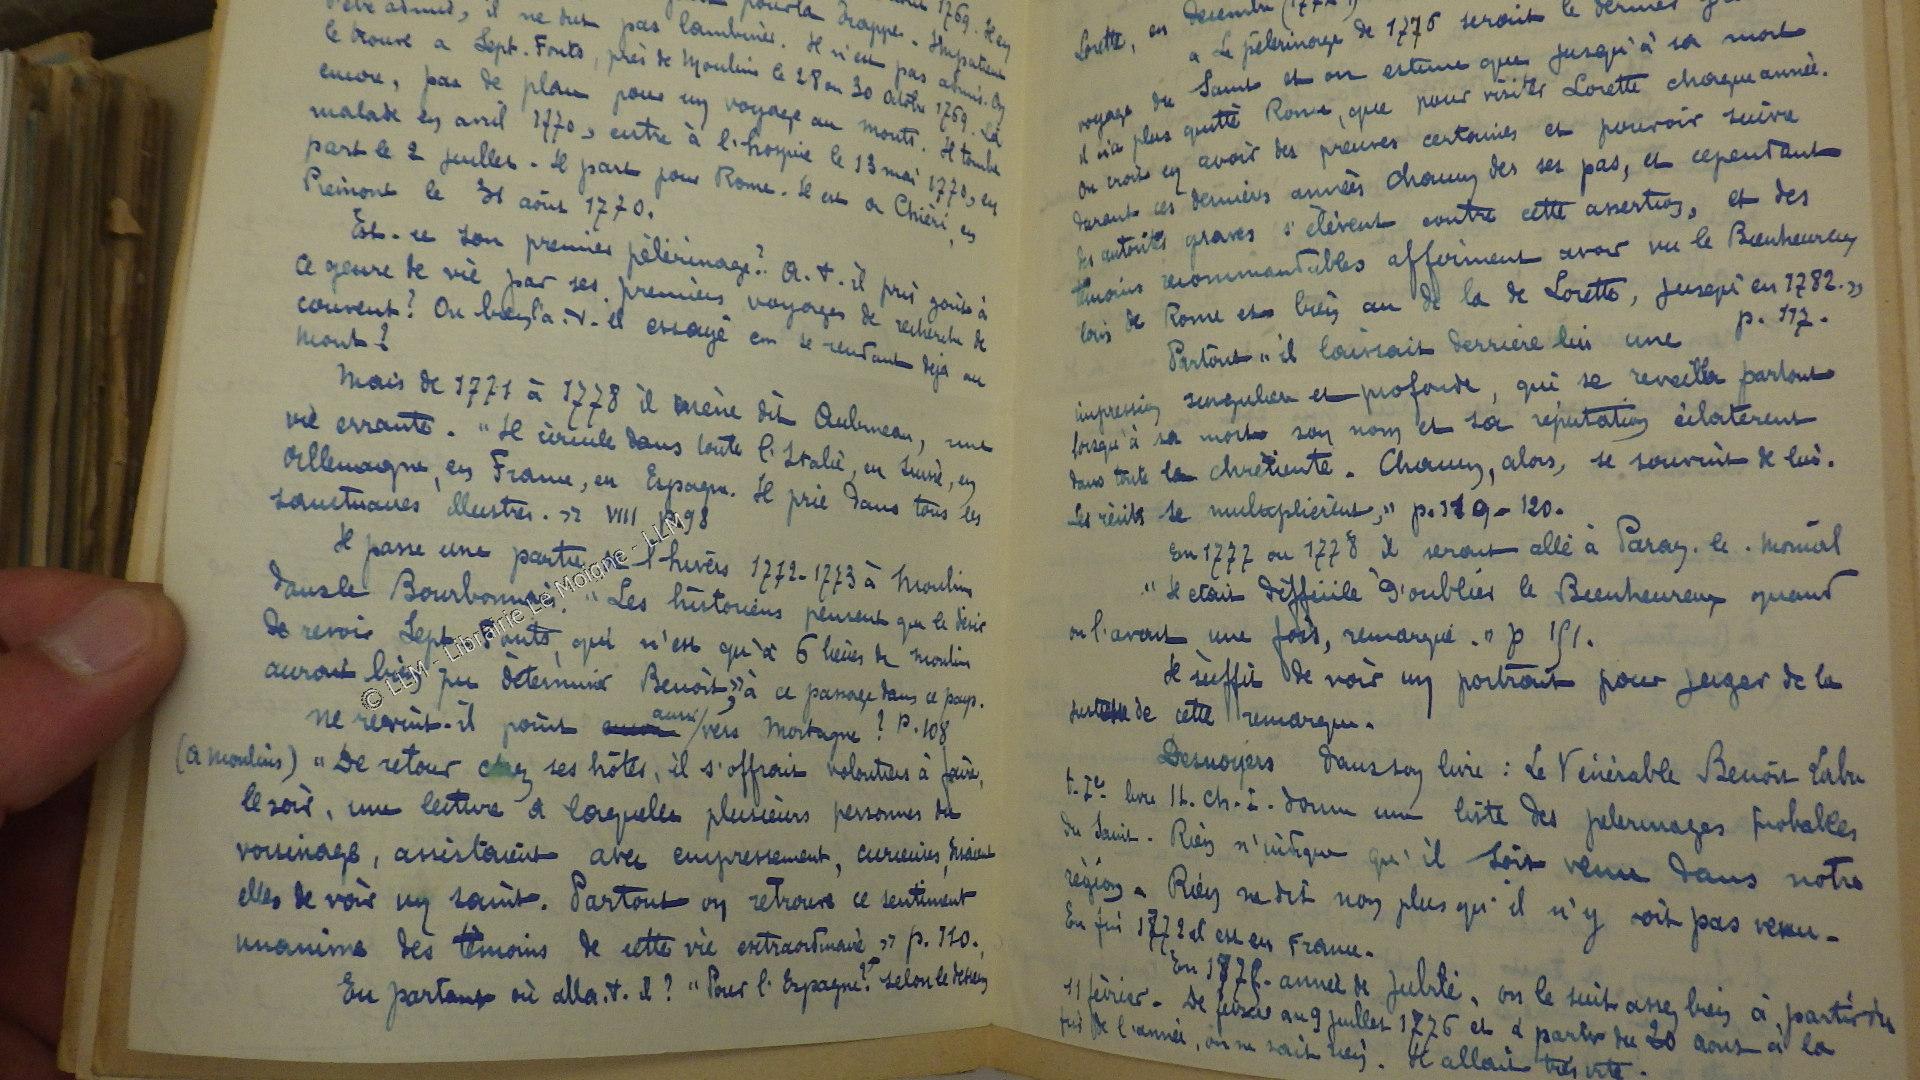 1769. Il en
l'être admis, il ne dut pas lambiner. Il n'est pas admis. On
le trouve à Sept-Fonts, près de Moulins le 28 ou 30 Octobre 1769. Là
encore, pas de plan pour un voyage au monts. Il tombe
malade en avril 1770, entre à l'hospice le 13 mai 1770, en
part le 2 juillet. Il part pour Rome. Il est à Chiéri, en
Piémont le 31 août 1770.
Est-ce son premier pèlerinage? A-t-il pris goût à
ce genre de vie par ses premiers voyages de recherche de
couvent? Ou bien l'a-t-il essayé en se rendant déjà au
Mont?
Mais de 1771 à 1778 il mène dit Aubineau, une
vie errante. "Il circule dans toute l'Italie, en Suisse, en
Allemagne, en France, en Espagne. Il prie dans tous les
sanctuaires illustres." VIII p. 98
Il passe une partie de l'hivers 1772-1773 à Moulins
dans le Bourbonnais. "Les historiens pensent que le désir
de revoir Sept-Fonts, qui n'est qu'à 6 lieues de Moulins
aurait bien pu déterminer Benoît," à ce passage dans ce pays.
ne revint-il point aussi vers Mortagne? p. 108
(à Moulins) "De retour chez ses hôtes, il s'offrait volontiers à faire,
le soir, une lecture à laquelle plusieurs personnes du
voisinage, assistaient avec empressement, curieuses, disaient
elles de voir un saint. Partout on retrouve ce sentiment
unanime des témoins de cette vie extraordinaire" p. 110.
En partant où alla-t-il? "Pour l'Espagne?" selon le dessein
© LLM - Librairie Le Moigne - LLM
Lorette, en décembre
"Le pèlerinage de 1776 serait le dernier
voyage du Saint et on estime que jusqu'à sa mort
il n'a plus quitté Rome, que pour visiter Lorette chaque année.
On croit en avoir des preuves certaines et pouvoir suivre
durant ces derniers années chacun des ses pas, et cependant
des autorités graves s'élèvent contre cette assertion, et des
témoins recommandables affirment avoir vu le Bienheureux
loin de Rome et bien au de la de Lorette, jusqu'en 1782."
p. 117.
Partout "il laissait derrière lui une
impression singulière et profonde, qui se réveilla partout
lorsqu'à sa mort son nom et sa réputation éclatèrent
dans toute la chrétienté. Chacun, alors, se souvint de lui.
Les récits se multiplièrent," p. 119-120.
En 1777 ou 1778 il serait allé à Paray-le-Monial
"Il était difficile d'oublier le Bienheureux quand
on l'avait une fois, remarqué." p 151.
Il suffit de voir un portrait pour juger de la
justesse de cette remarque.
Desnoyers dans son livre : Le Vénérable Benoît Labre
t. Ier livre II. ch. I. donne une liste des pèlerinages probables
du Saint. Rien n'indique qu'il soit venu dans notre
région. Rien ne dit non plus qu'il n'y soit pas venu.
En fin 1772 il est en France.
En 1776 année de Jubilé, on le suit assez bien à partir du
11 février. De février au 9 juillet 1776 et à partir du 20 août à la
fin de l'année, on ne sait rien. Il allait très vite.